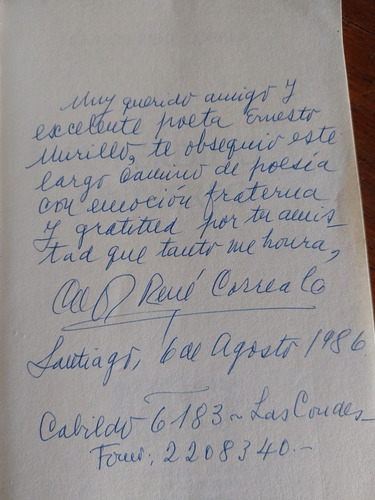 Muy querido amigo y
excelente poeta Ernesto
Murillo, te obsequio este
largo camino de poesía
con emoción fraterna
y gratitud por tu amis-
tad que tanto me honra,
René Correa
Santiago, 6 de Agosto 1986
Cabildo 6183 ~ Las Condes
Fono: 2208340.-